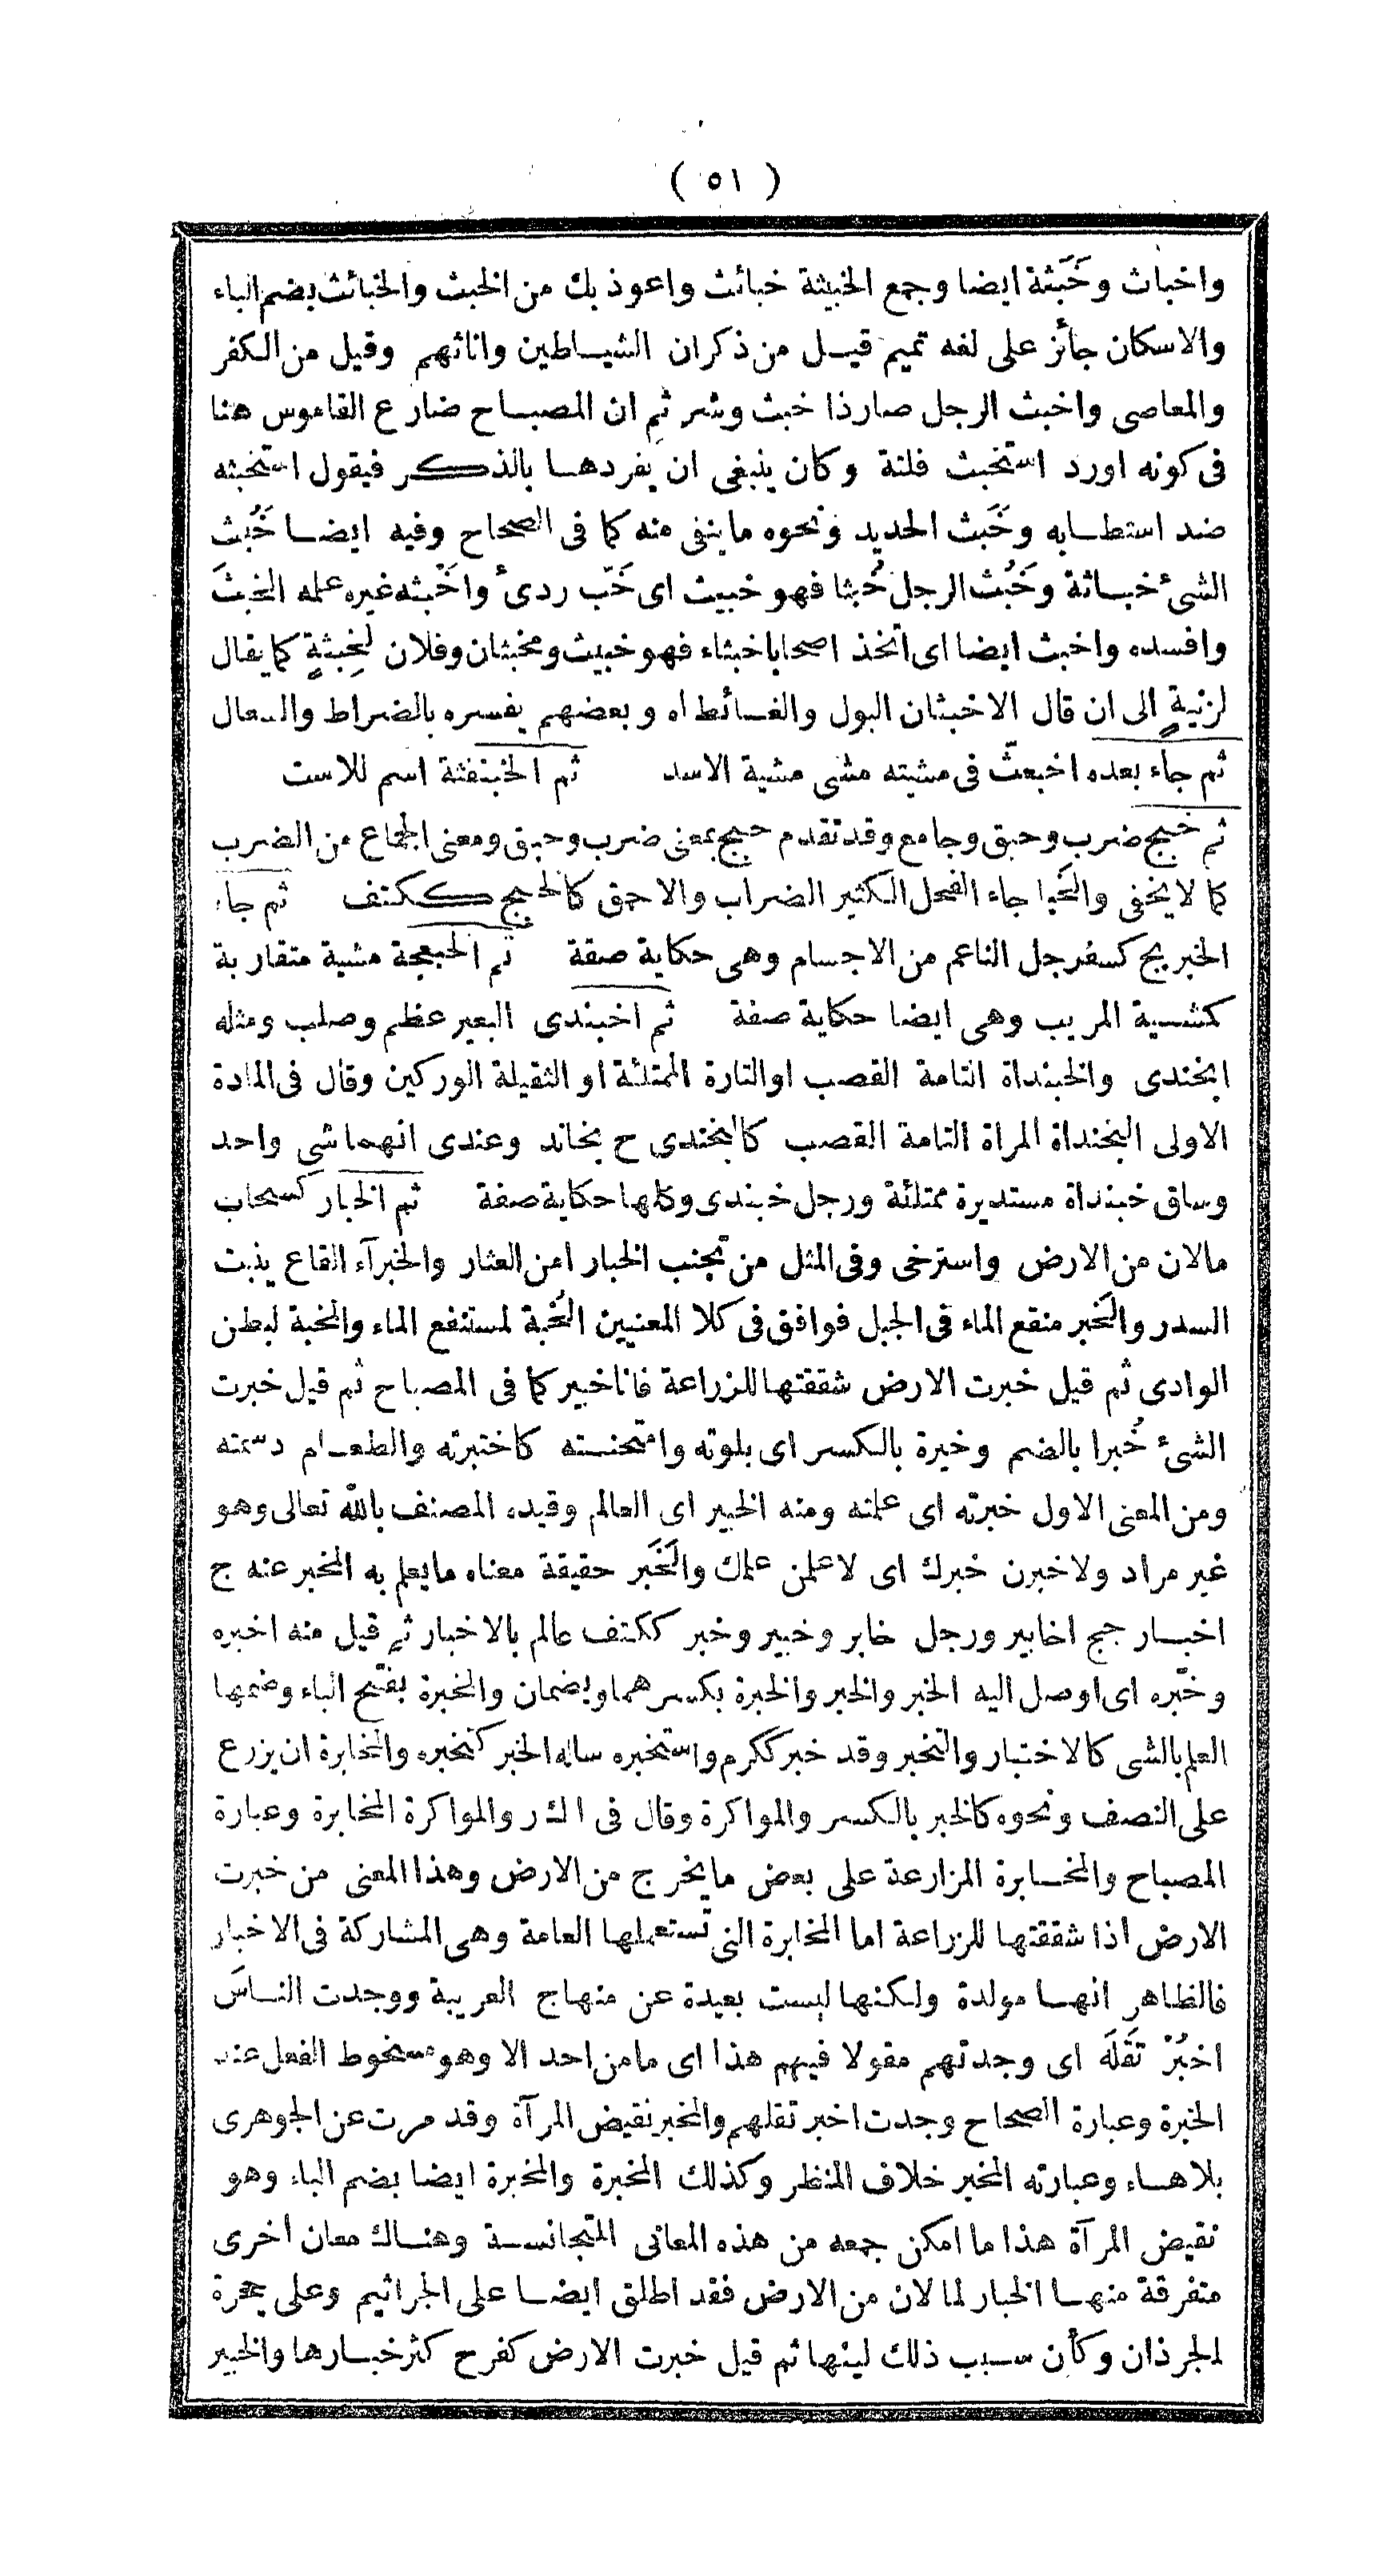 ( ٥١ )
واخباث وخَبَثة ايضا وجمع الخبيثة خبائث واعوذ بك من الخبث والخبائث بضم الباء
والاسكان جائز على لغه تميم قيـل من ذكران الشيـاطين واناثهم وقيل من الكفر
والمعاصى واخبث الرجل صار ذا خبث وشر ثم ان المصبـاح ضارع القاموس هنا
فى كونه اورد استخبث فلتة وكان ينبغى ان يفردهـا بالذكـر فيقول استخبثه
ضد استطـابه وخَبَث الحديد ونحوه ما ينفى منه كما فى الصحاح وفيه ايضـا خَبُث
الشئ خبـاثة وخَبُث الرجل خُبثا فهو خبيث اى خَبّ ردئ واخْبثه غيره علمه الخبثَ
وافسده واخبث ايضا اى اتخذ اصحابا خبثاء فهو خبيث ومخبثان وفلان لِخِبثةٍ كما يقال
لزنيةٍ الى ان قال الاخبثان البول والغـائط اه وبعضهم يفسره بالضراط والسعال
ثم جاء بعده اخبعثّ فى مشيته مشى مشية الاسد ثم الخبنفثة اسم للاست
ثم خبج ضرب وحبق وجامع وقد تقدم حبج بمعنى ضرب وحبق ومعنى الجماع من الضرب
كما لا يخفى والخَباجاء الفحل الكثير الضراب والاحمق كالخبج ككتف ثم جاء
الخبربج كسفرجل الناعم من الاجسام وهى حكاية صفة ثم الخبعجة مشية متقاربة
كمشـية المريب وهى ايضا حكاية صفة ثم اخبندى البعير عظم وصلب ومثله
ابخندى والخبنداة التامة القصب او التارة الممتلئة او الثقيلة الوركين وقال فى المادة
الاولى البخنداة المراة التامة القصب كالبخندى ح بخاند وعندى انهما شى واحد
وساق خبنداة مستديرة ممتلئة ورجل خبندى وكلها حكاية صفة ثم الخبار كسحاب
مالان من الارض واسترخى وفى المثل من تجنب الخبار امن العثار والخبرآء القاع ينبت
السدر والخَبر منقع الماء فى الجبل فوافق فى كلا المعنيين الخُبة لمستنقع الماء والخبة لبطن
الوادى ثم قيل خبرت الارض شققتها للزراعة فانا خبير كما فى المصباح ثم قيل خبرت
الشئ خُبرا بالضم وخبرة بالكسر اى بلوته وامتحنـته كاختبرته والطعـام دسمته
ومن المعنى الاول خبرته اى علمته ومنه الخبير اى العالم وقيده المصنف بالله تعالى وهو
غير مراد ولاخبرن خبرك اى لاعلمن علمك والخَبَر حقيقة معناه ما يعلم به المخبر عنه ج
اخبـار جج اخابير ورجل خابر وخبير وخبر ككتف عالم بالاخبار ثم قيل منه اخبره
وخبّره اى اوصل اليه الخبر والخبر والخبرة بكسرهما ويضمان والمخبرة بفتح الباء وضمها
العلم بالشى كالاختبار والتخبر وقد خبر ككرم واستخبره ساله الخبر كتخبره والمخابرة ان يزرع
على النصف ونحوه كالخبر بالكسر والمواكرة وقال فى اكر والمواكرة المخابرة وعبارة
المصباح والمخـابرة المزارعة على بعض ما يخرج من الارض وهذا المعنى من خبرت
الارض اذا شققتها للزراعة اما المخابرة التى تستعملها العامة وهى المشاركة فى الاخبار
فالظاهر انهـا مولدة ولكنها ليست بعيدة عن منهاج العربية ووجدت النـاسَ
اخبُرْ تَقلَه اى وجدتهم مقولا فيهم هذا اى ما من احد الا وهو مسخوط الفعل عند
الخبرة وعبارة الصحاح وجدت اخبر تقلهم والمخبر نقيض المرآة وقد مرت عن الجوهرى
بلا هـاء وعبارته المخبر خلاف المنظر وكذلك المخبرة والمخبرة ايضا بضم الباء وهو
نقيض المرآة هذا ما امكن جمعه من هذه المعانى المتجانسـة وهنـاك معان اخرى
متفرقة منهـا الخبار لما لان من الارض فقد اطلق ايضـا على الجراثيم وعلى جحرة
الجرذان وكأن سبب ذلك لينها ثم قيل خبرت الارض كفرح كثر خبـارها والخبير